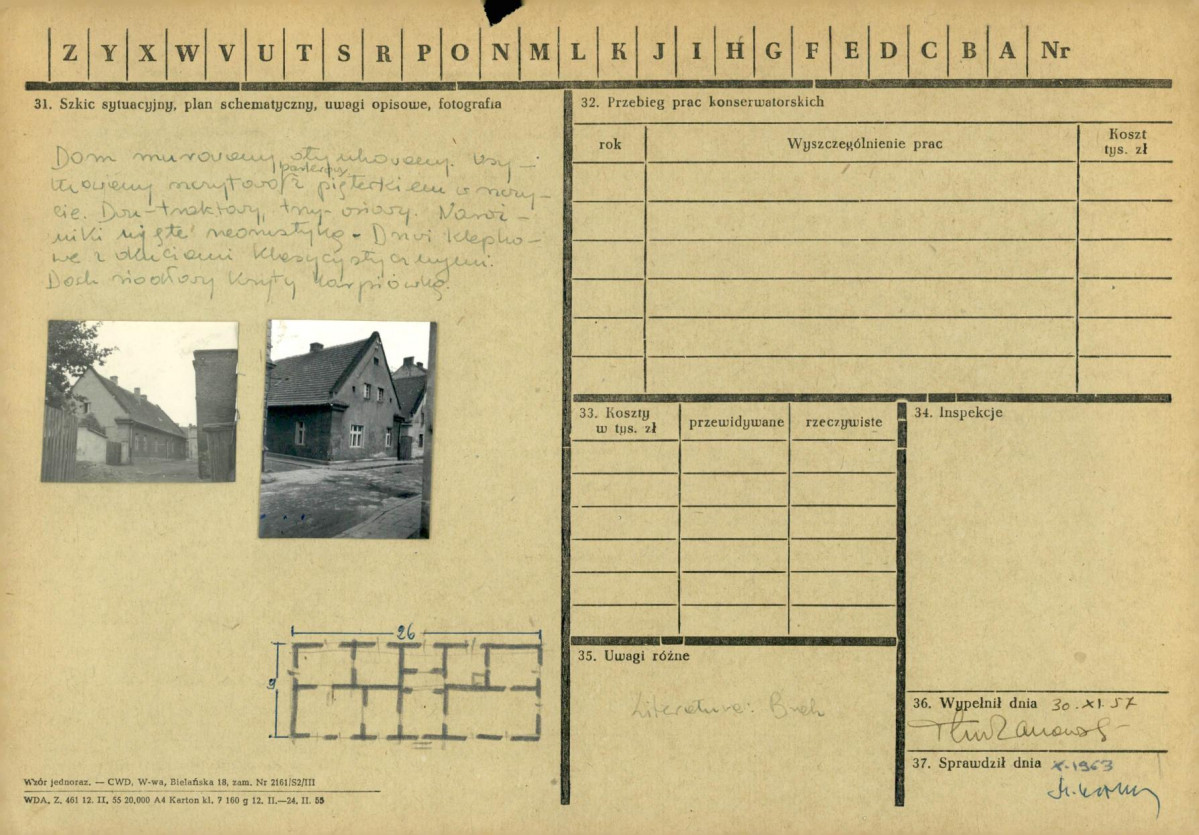 Z Y X W V U T S R P O N M L K J I H G F E D C B A Nr
31. Szkic sytuacyjny, plan schematyczny, uwagi opisowe, fotografia
Dom murowany, otynkowany. Usy-
tuowany szczytowo, parterowy z pięterkiem w szczy-
cie. Dwu-traktowy, trzy-osiowy. Naroż-
niki ujęte boniowaniem. Drzwi klepko-
we z okuciami klasycystycznymi.
Dach siodłowy kryty karpiówką.
26
9
Wzór jednoraz. — CWD, W-wa, Bielańska 18, zam. Nr 2161/S2/III
WDA, Z. 461 12. II, 55 20,000 A4 Karton kl. 7 160 g 12. II.—24. II. 55
32. Przebieg prac konserwatorskich
rok
Wyszczególnienie prac
Koszt
tys. zł
33. Koszty
w tys. zł
przewidywane
rzeczywiste
34. Inspekcje
35. Uwagi różne
Literatura: Brak
36. Wypełnił dnia 30.XI.57
37. Sprawdził dnia X.1963